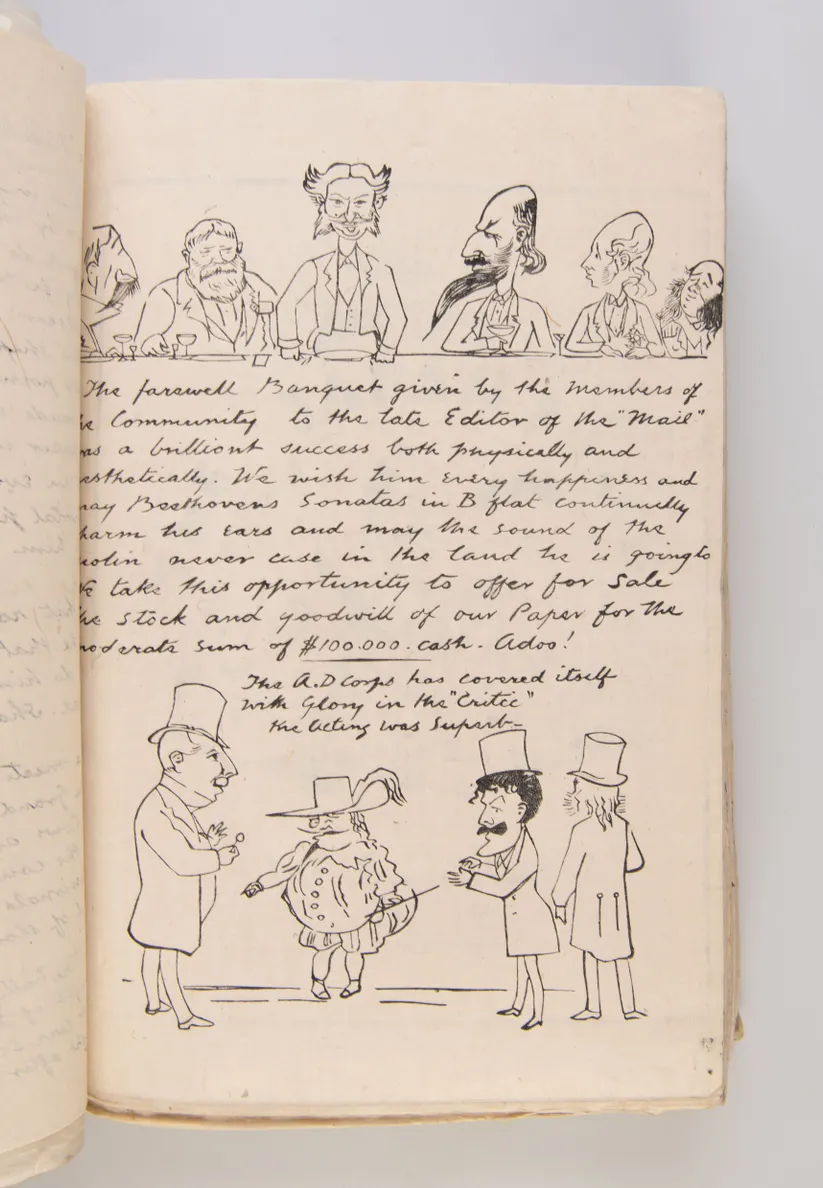 The farewell Banquet given by the Members of
he Community to the late Editor of the "Mail"
as a brilliont success both physically and
esthetically. We wish him every happiness and
may Beethovens Sonatas in B flat continually
harm his ears and may the sound of the
iolin never case in the land he is going to
We take this opportunity to offer for Sale
he Stock and goodwill of our Paper for the
moderate sum of $100.000. cash. Adoo!
The A.D Corps has covered itself
with Glory in the "Critic"
the Acting was Superb-